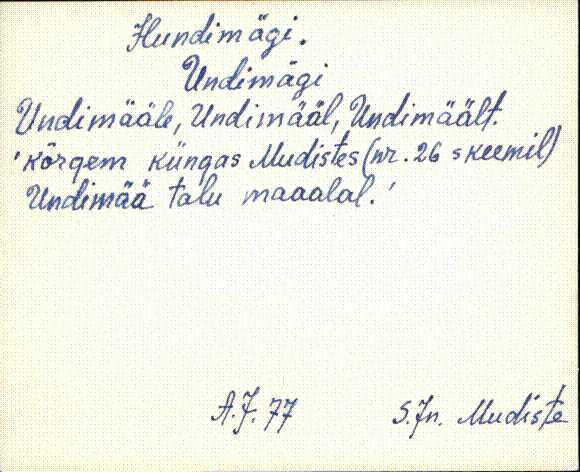 Hundimägi.
Undimägi
Undimääle, Undimääl, Undimäält.
'kõrgem küngas Mudistes (nr. 26 skeemil)
Undimää talu maaalal.'
A.J. 77 S.Jn. Mudiste